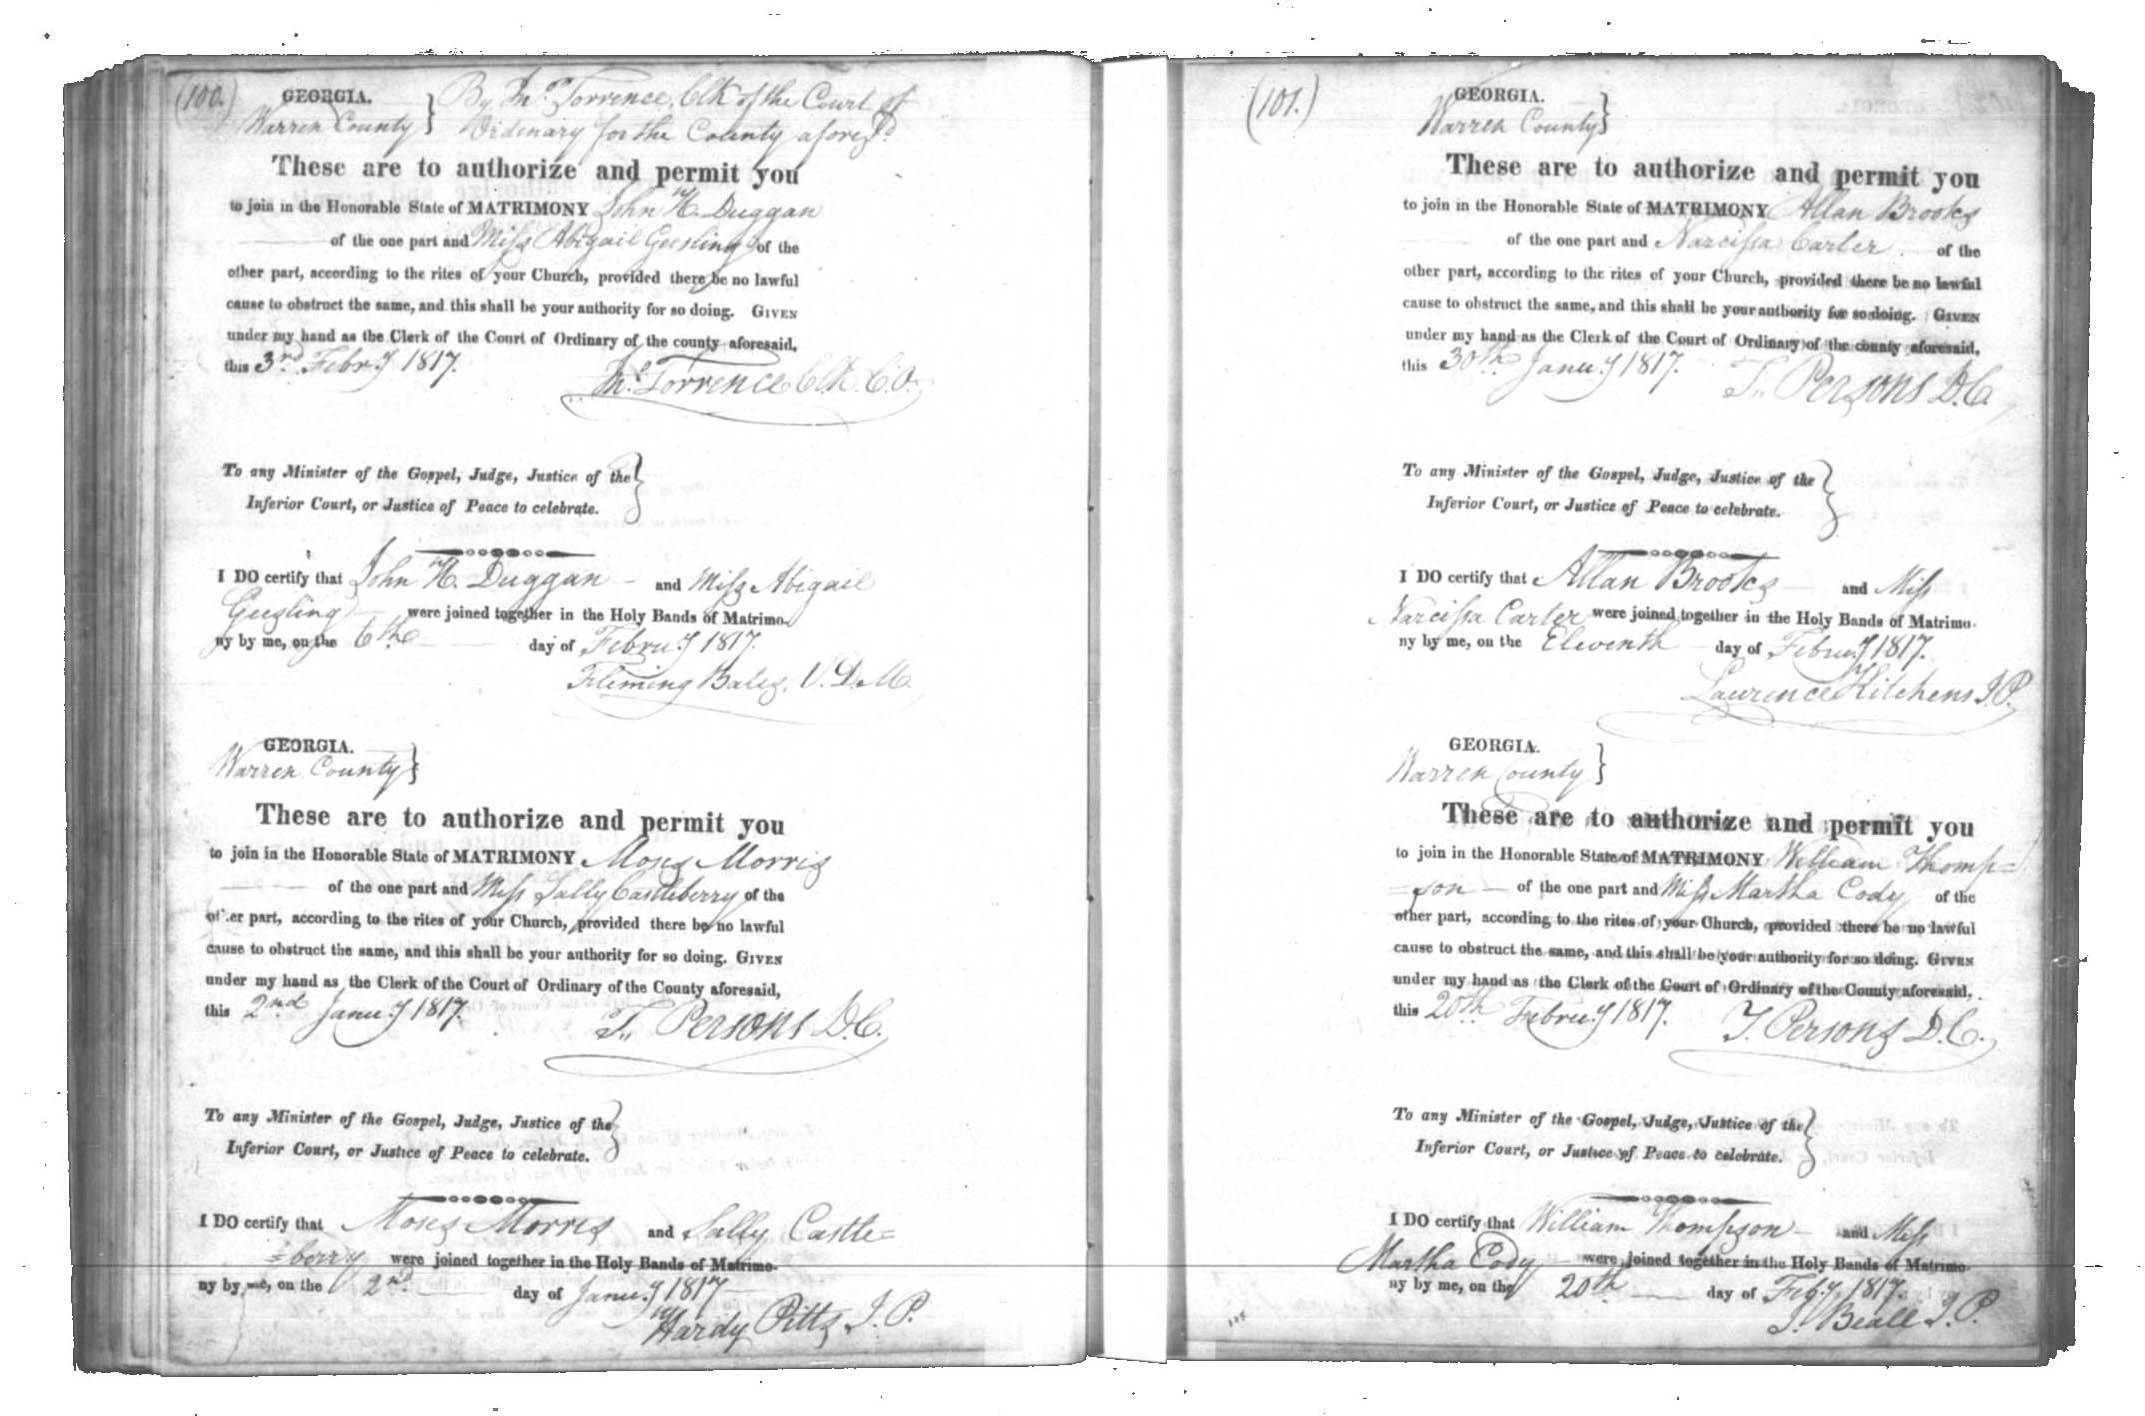 (100.)
GEORGIA. } By Jn° Torrence, Clk of the Court of
Warren County } Ordinary for the County afores'd
These are to authorize and permit you
to join in the Honorable State of MATRIMONY John H. Duggan
of the one part and Miss Abigail Geesling of the
other part, according to the rites of your Church, provided there be no lawful
cause to obstruct the same, and this shall be your authority for so doing. GIVEN
under my hand as the Clerk of the Court of Ordinary of the county aforesaid,
this 3rd Febr.y 1817.
Jn° Torrence Clk. C.O.
To any Minister of the Gospel, Judge, Justice of the }
Inferior Court, or Justice of Peace to celebrate.
I DO certify that John H. Duggan - and Miss Abigail
Geesling were joined together in the Holy Bands of Matrimo-
ny by me, on the 6th day of Febru.y 1817.
Fleming Bates. V.D.M.
GEORGIA. }
Warren County }
These are to authorize and permit you
to join in the Honorable State of MATRIMONY Moses Morris
of the one part and Miss Sally Castleberry of the
other part, according to the rites of your Church, provided there be no lawful
cause to obstruct the same, and this shall be your authority for so doing. GIVEN
under my hand as the Clerk of the Court of Ordinary of the County aforesaid,
this 2nd Janu.y 1817.
T. Persons D.C.
To any Minister of the Gospel, Judge, Justice of the }
Inferior Court, or Justice of Peace to celebrate.
I DO certify that Moses Morris and Sally Castle=
=berry were joined together in the Holy Bands of Matrimo-
ny by me, on the 2nd day of Janu.y 1817
Hardy Pitts J.P.
(101.)
GEORGIA. }
Warren County }
These are to authorize and permit you
to join in the Honorable State of MATRIMONY Allan Brooks
of the one part and Narcissa Carter of the
other part, according to the rites of your Church, provided there be no lawful
cause to obstruct the same, and this shall be your authority for so doing. GIVEN
under my hand as the Clerk of the Court of Ordinary of the county aforesaid,
this 30th Janu.y 1817.
T. Persons D.C.
To any Minister of the Gospel, Judge, Justice of the }
Inferior Court, or Justice of Peace to celebrate.
I DO certify that Allan Brooks and Miss
Narcissa Carter were joined together in the Holy Bands of Matrimo-
ny by me, on the Eleventh day of Febru.y 1817.
Laurence Kitchens J.P.
GEORGIA. }
Warren County }
These are to authorize and permit you
to join in the Honorable State of MATRIMONY William Thomp=
=son - of the one part and Miss Martha Cody of the
other part, according to the rites of your Church, provided there be no lawful
cause to obstruct the same, and this shall be your authority for so doing. GIVEN
under my hand as the Clerk of the Court of Ordinary of the County aforesaid,
this 20th Febru.y 1817.
T. Persons D.C.
To any Minister of the Gospel, Judge, Justice of the }
Inferior Court, or Justice of Peace to celebrate.
I DO certify that William Thompson - and Miss
Martha Cody were joined together in the Holy Bands of Matrimo-
ny by me, on the 20th day of Feb.y 1817.
J. Beall J.P.